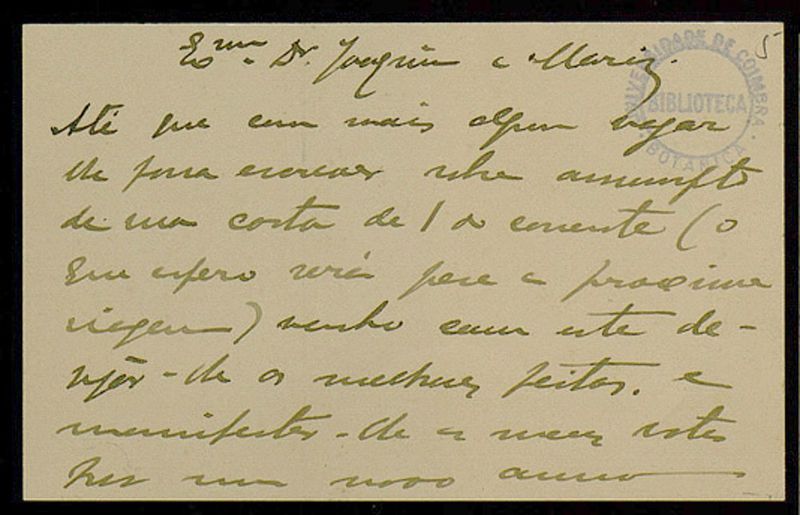 Exmo Dr. Joaquim e Mariz.
5
UNIVERSIDADE DE COIMBRA
BIBLIOTECA
BOTANICA
Até que com mais algum vagar
lhe possa escrever sobre assumpto
de sua carta de 1 do corrente (o
que espero será para a proxima
viagem) venho com este de-
sejar-lhe as melhores festas, e
manifestar-lhe os meus votos
por um novo anno